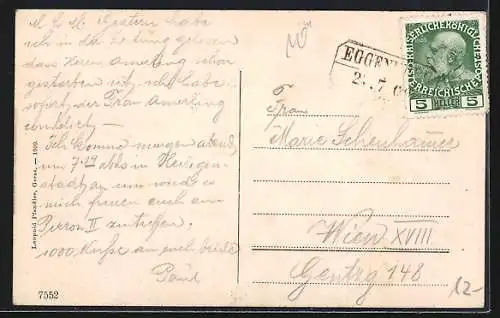 M. L. M. Gestern habe
ich in der Zeitung gelesen
dass Herr Amerling schon
gestorben ist, ich habe
sofort der Frau Amerling
condoliert —
Ich komme morgen abend
um 7.19 abds in Heiligen-
stadt an und würde es
mich freuen euch am
Perron II zu treffen.
1000 Küsse an euch beide
Paul
Leopold Pfandler, Geras, — 1909.
7552
EGGENBURG
KAISERLICHE KÖNIGLICHE ÖSTERREICHISCHE POST
5 HELLER 5
Frau
Marie
Wien XVIII
Gentzg 148
12-